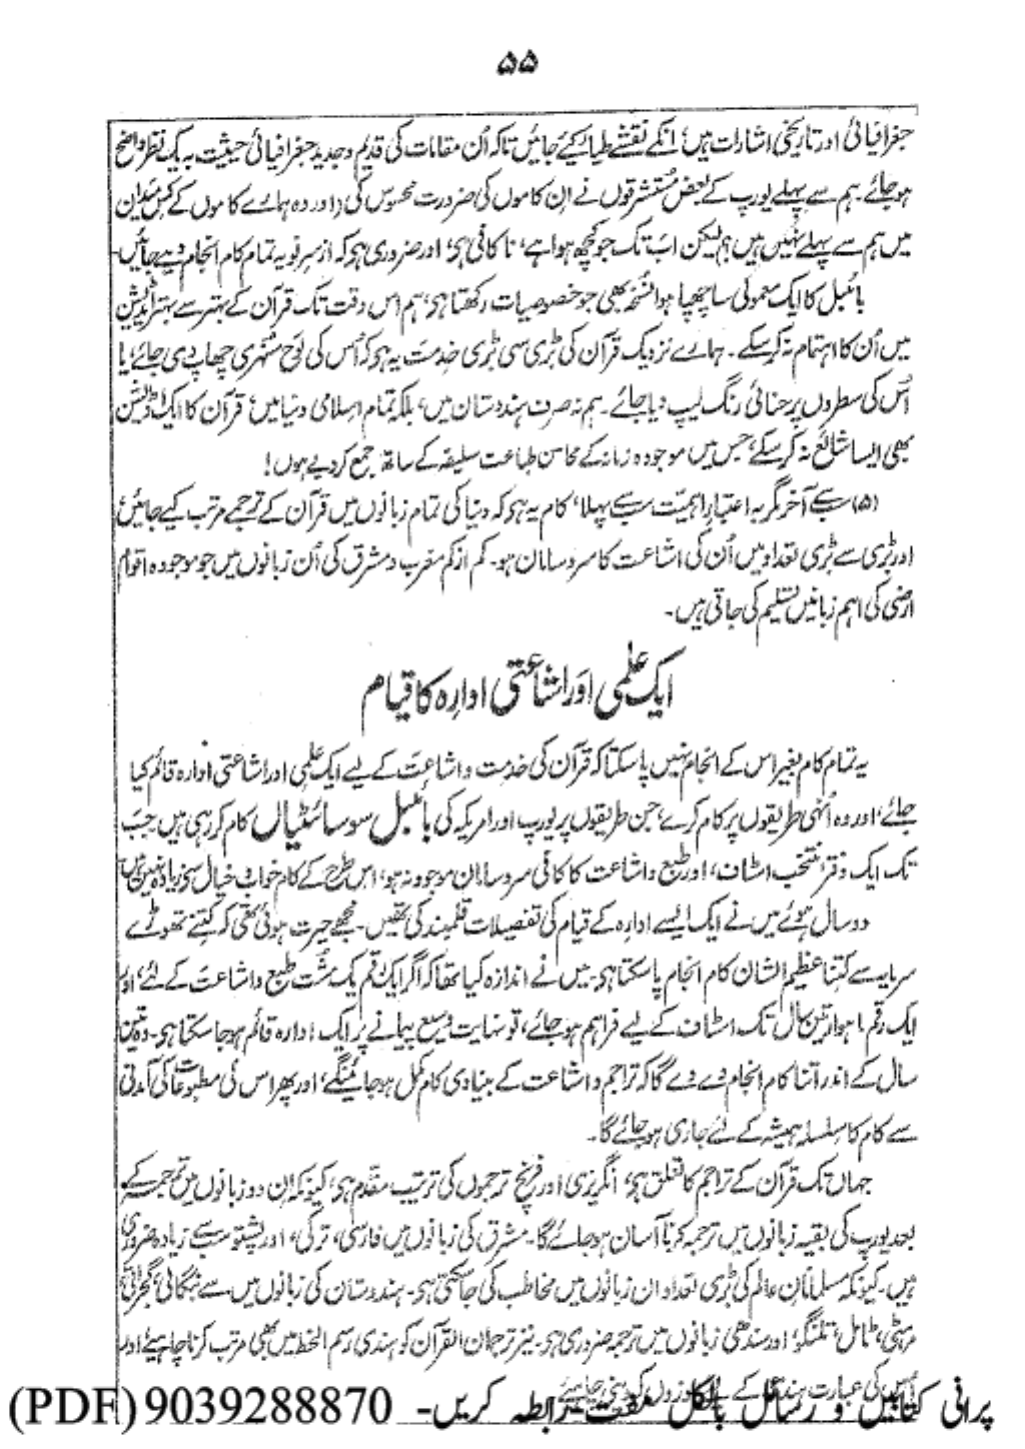 ۵۵
جغرافیائی اور تاریخی اشارات ہیں، انکے نقشے طیار کیے جائیں تاکہ اُن مقامات کی قدیم و جدید جغرافیائی حیثیت بہ یک نظر واضح
ہو جائے۔ ہم سے پہلے یورپ کے بعض مُستشرقوں نے اِن کاموں کی ضرورت محسوس کی اور وہ ہمارے کاموں کے کس میدان
میں ہم سے پہلے نہیں ہیں؟ لیکن اب تک جو کچھ ہوا ہے، ناکافی ہی، اور ضروری ہی کہ از سر نو یہ تمام کام انجام دیے جائیں۔
بائبل کا ایک معمولی سا چھپا ہوا نُسخہ بھی جو خصوصیات رکھتا ہی، ہم اس وقت تک قرآن کے بہتر سے بہتر اڈیشن
میں اُن کا اہتمام نہ کر سکے۔ ہمارے نزدیک قرآن کی بڑی سی بڑی خدمت یہ ہی کہ اُس کی لوح سُنہری چھاپ دی جائے، یا
اُس کی سطروں پر حنائی رنگ لیپ دیا جائے۔ ہم نہ صرف ہندوستان میں، بلکہ تمام اسلامی دنیا میں، قرآن کا ایک اڈیشن
بھی ایسا شائع نہ کر سکے، جس میں موجودہ زمانہ کے محاسن طباعت سلیقہ کے ساتھ جمع کر دیے ہوں!
(۵) سب سے آخر مگر بہ اعتبار اہمیّت سب سے پہلا، کام یہ ہی کہ دنیا کی تمام زبانوں میں قرآن کے ترجمے مرتب کیے جائیں،
اور بڑی سے بڑی تعداد میں اُن کی اشاعت کا سر و سامان ہو۔ کم از کم مغرب و مشرق کی اُن زبانوں میں جو موجودہ اقوام
ارضی کی اہم زبانیں تسلیم کی جاتی ہیں۔
ایک علمی اور اشاعتی ادارہ کا قیام
یہ تمام کام بغیر اس کے انجام نہیں پا سکتا کہ قرآن کی خدمت و اشاعت کے لیے ایک علمی اور اشاعتی ادارہ قائم کیا
جائے، اور وہ اُنہی طریقوں پر کام کرے، جن طریقوں پر یورپ اور امریکہ کی بائبل سوسائٹیاں کام کر رہی ہیں۔ جب
تک ایک دفتر، منتخب اسٹاف، اور طبع و اشاعت کا کافی سر و سامان موجود نہ ہو، اس طرح کے کام خواب و خیال سے زیادہ نہیں ہیں
دو سال ہوئے میں نے ایک ایسے ادارہ کے قیام کی تفصیلات قلمبند کی تھیں۔ مجھے حیرت ہوئی تھی کہ کتنے تھوڑے
سرمایہ سے کتنا عظیم الشان کام انجام پا سکتا ہی۔ میں نے اندازہ کیا تھا کہ اگر ایک رقم یک مُشت طبع و اشاعت کے لئے، اور
ایک رقم ماہوار تین سال تک اسٹاف کے لیے فراہم ہو جائے، تو نہایت وسیع پیمانے پر ایک ادارہ قائم ہو جا سکتا ہی۔ وہ تین
سال کے اندر اتنا کام انجام دے دے گا کہ تراجم و اشاعت کے بنیادی کام مکمل ہو جائینگے، اور پھر اس کی مطبوعات کی آمدنی
سے کام کا سلسلہ ہمیشہ کے لئے جاری ہو جائے گا۔
جہاں تک قرآن کے تراجم کا تعلق ہی، انگریزی اور فرنچ ترجموں کی ترتیب مقدّم ہی، کیونکہ اِن دو زبانوں میں ترجمہ کے
بعد یورپ کی بقیہ زبانوں میں ترجمہ کرنا آسان ہو جائے گا۔ مشرق کی زبانوں میں فارسی، ترکی، اور پشتو سب سے زیادہ ضروری
ہیں۔ کیونکہ مسلمانانِ عالم کی بڑی تعداد ان زبانوں میں مخاطب کی جا سکتی ہی۔ ہندوستان کی زبانوں میں سے بنگالی، گجراتی،
مرہٹی، ٹامل، تلنگو، اور سندھی زبانوں میں ترجمہ ضروری ہی۔ نیز ترجمان القرآن کو ہندی رسم الخط میں بھی مرتب کرنا چاہیے اور
اُس کی عبارت ہندی کے لیے موزوں کر دینی چاہیے
پرانی کتابیں و رسائل بالکل مفت۔ رابطہ کریں۔ 9039288870 (PDF)